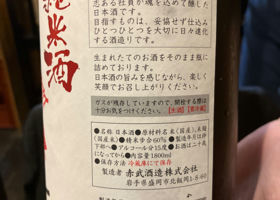 純米酒
志ある社員が魂を込めて醸した
日本酒です。
目指すものは、妥協せず仕込み
ひとつひとつを大切に日々進化
する酒造りです。
生まれたてのお酒をそのまま瓶に
詰めております。
日本酒の旨みを感じながら、楽しく
笑顔でお召し上がりください。
ガスが残存していますので、開栓する際は
十分お気をつけください。【生酒】【要冷蔵】
●名称 日本酒●原材料名 米(国産)、米麹
(国産)●精米歩合60%●製造年月は枠
下部へ●アルコール分15度●お酒は二十歳
になってから●内容量1800ml
●保存方法 冷蔵庫にて保存
製造者 赤武酒造株式会社
岩手県盛岡市北飯岡1-8-60